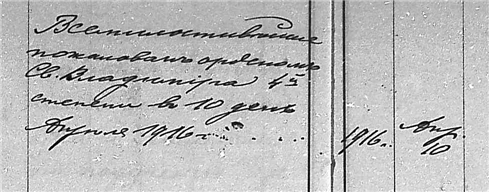 Всемилостивѣйше
пожалованъ орденомъ
Св. Владиміра 4й
степени въ 10 день
Апрѣля 1916 г. . . . 1916 г. Апр.
10